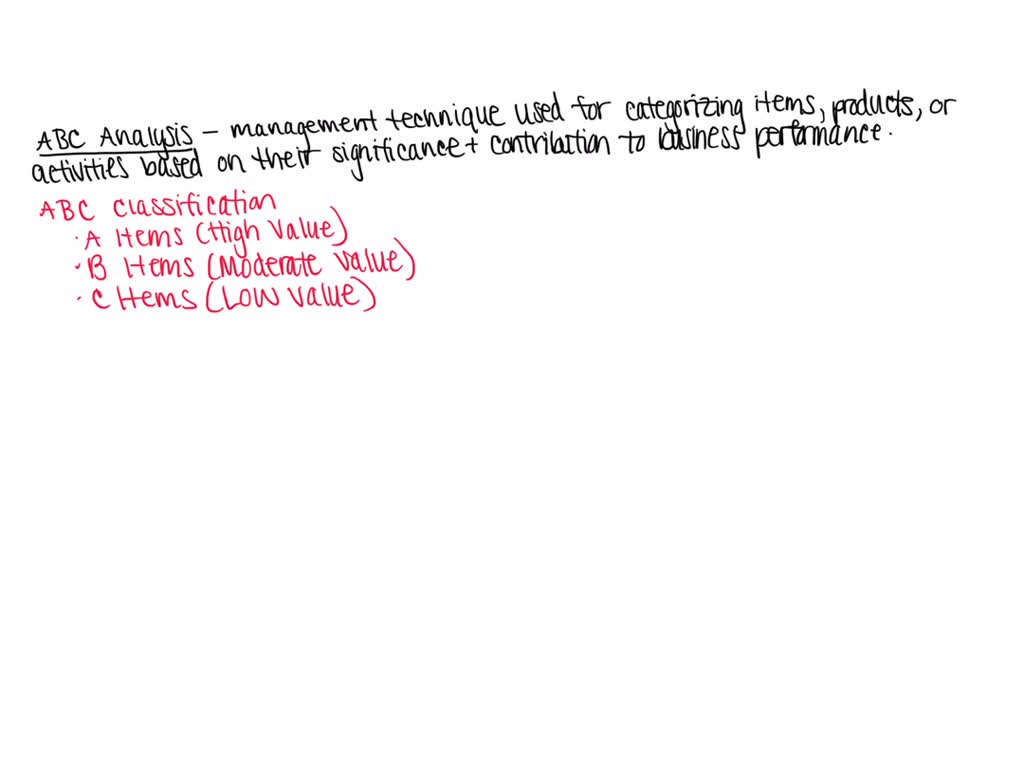 ABC Analysis – management technique used for categorizing items, products, or
activities based on their significance + contribution to business performance.
ABC classification
· A Items (High Value)
· B Items (Moderate Value)
· C Items (Low Value)